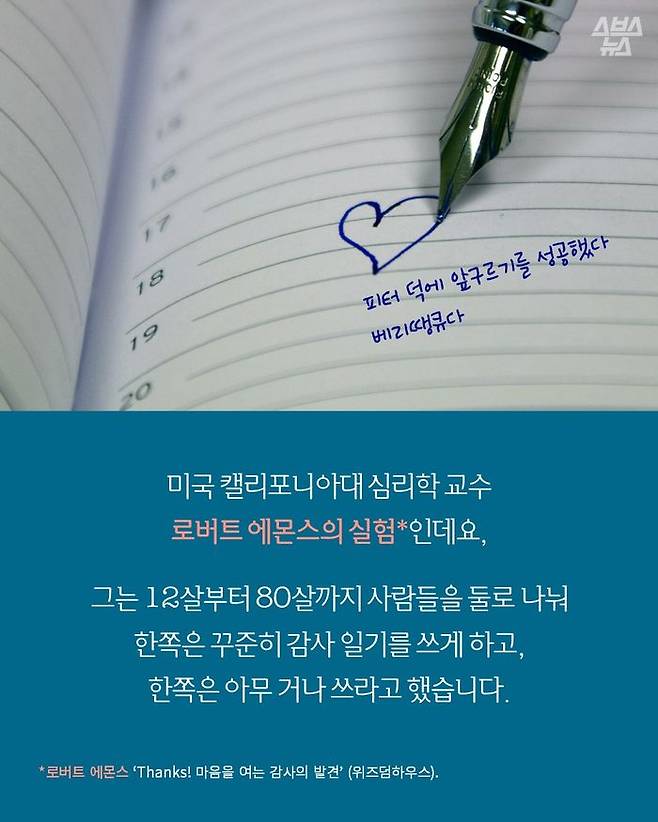 스브스
뉴스
16
17
18
19
20
피터 덕에 앞구르기를 성공했다
베리땡큐다
미국 캘리포니아대 심리학 교수
로버트 에몬스의 실험*인데요,
그는 12살부터 80살까지 사람들을 둘로 나눠
한쪽은 꾸준히 감사 일기를 쓰게 하고,
한쪽은 아무 거나 쓰라고 했습니다.
*로버트 에몬스 ‘Thanks! 마음을 여는 감사의 발견’ (위즈덤하우스).